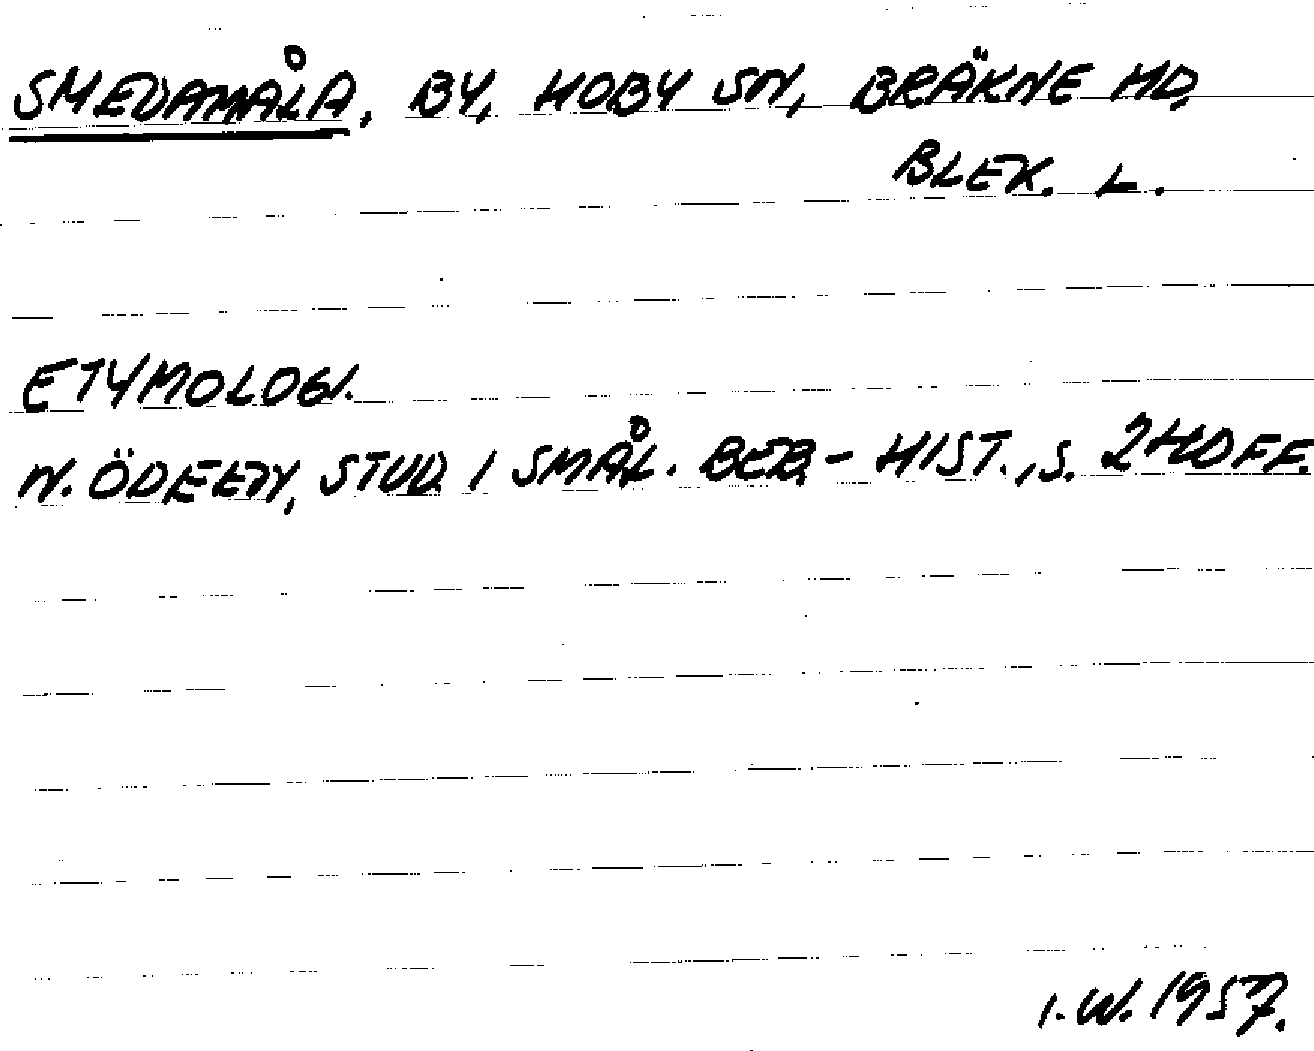 SMEDAMÅLA, BY, HOBY SN, BRÄKNE HD,
BLEK. L.
ETYMOLOGI.
N. ÖDEEN, STUD. I SMÅL. BEB.-HIST., S. 240 FF.
I.W. 1957.